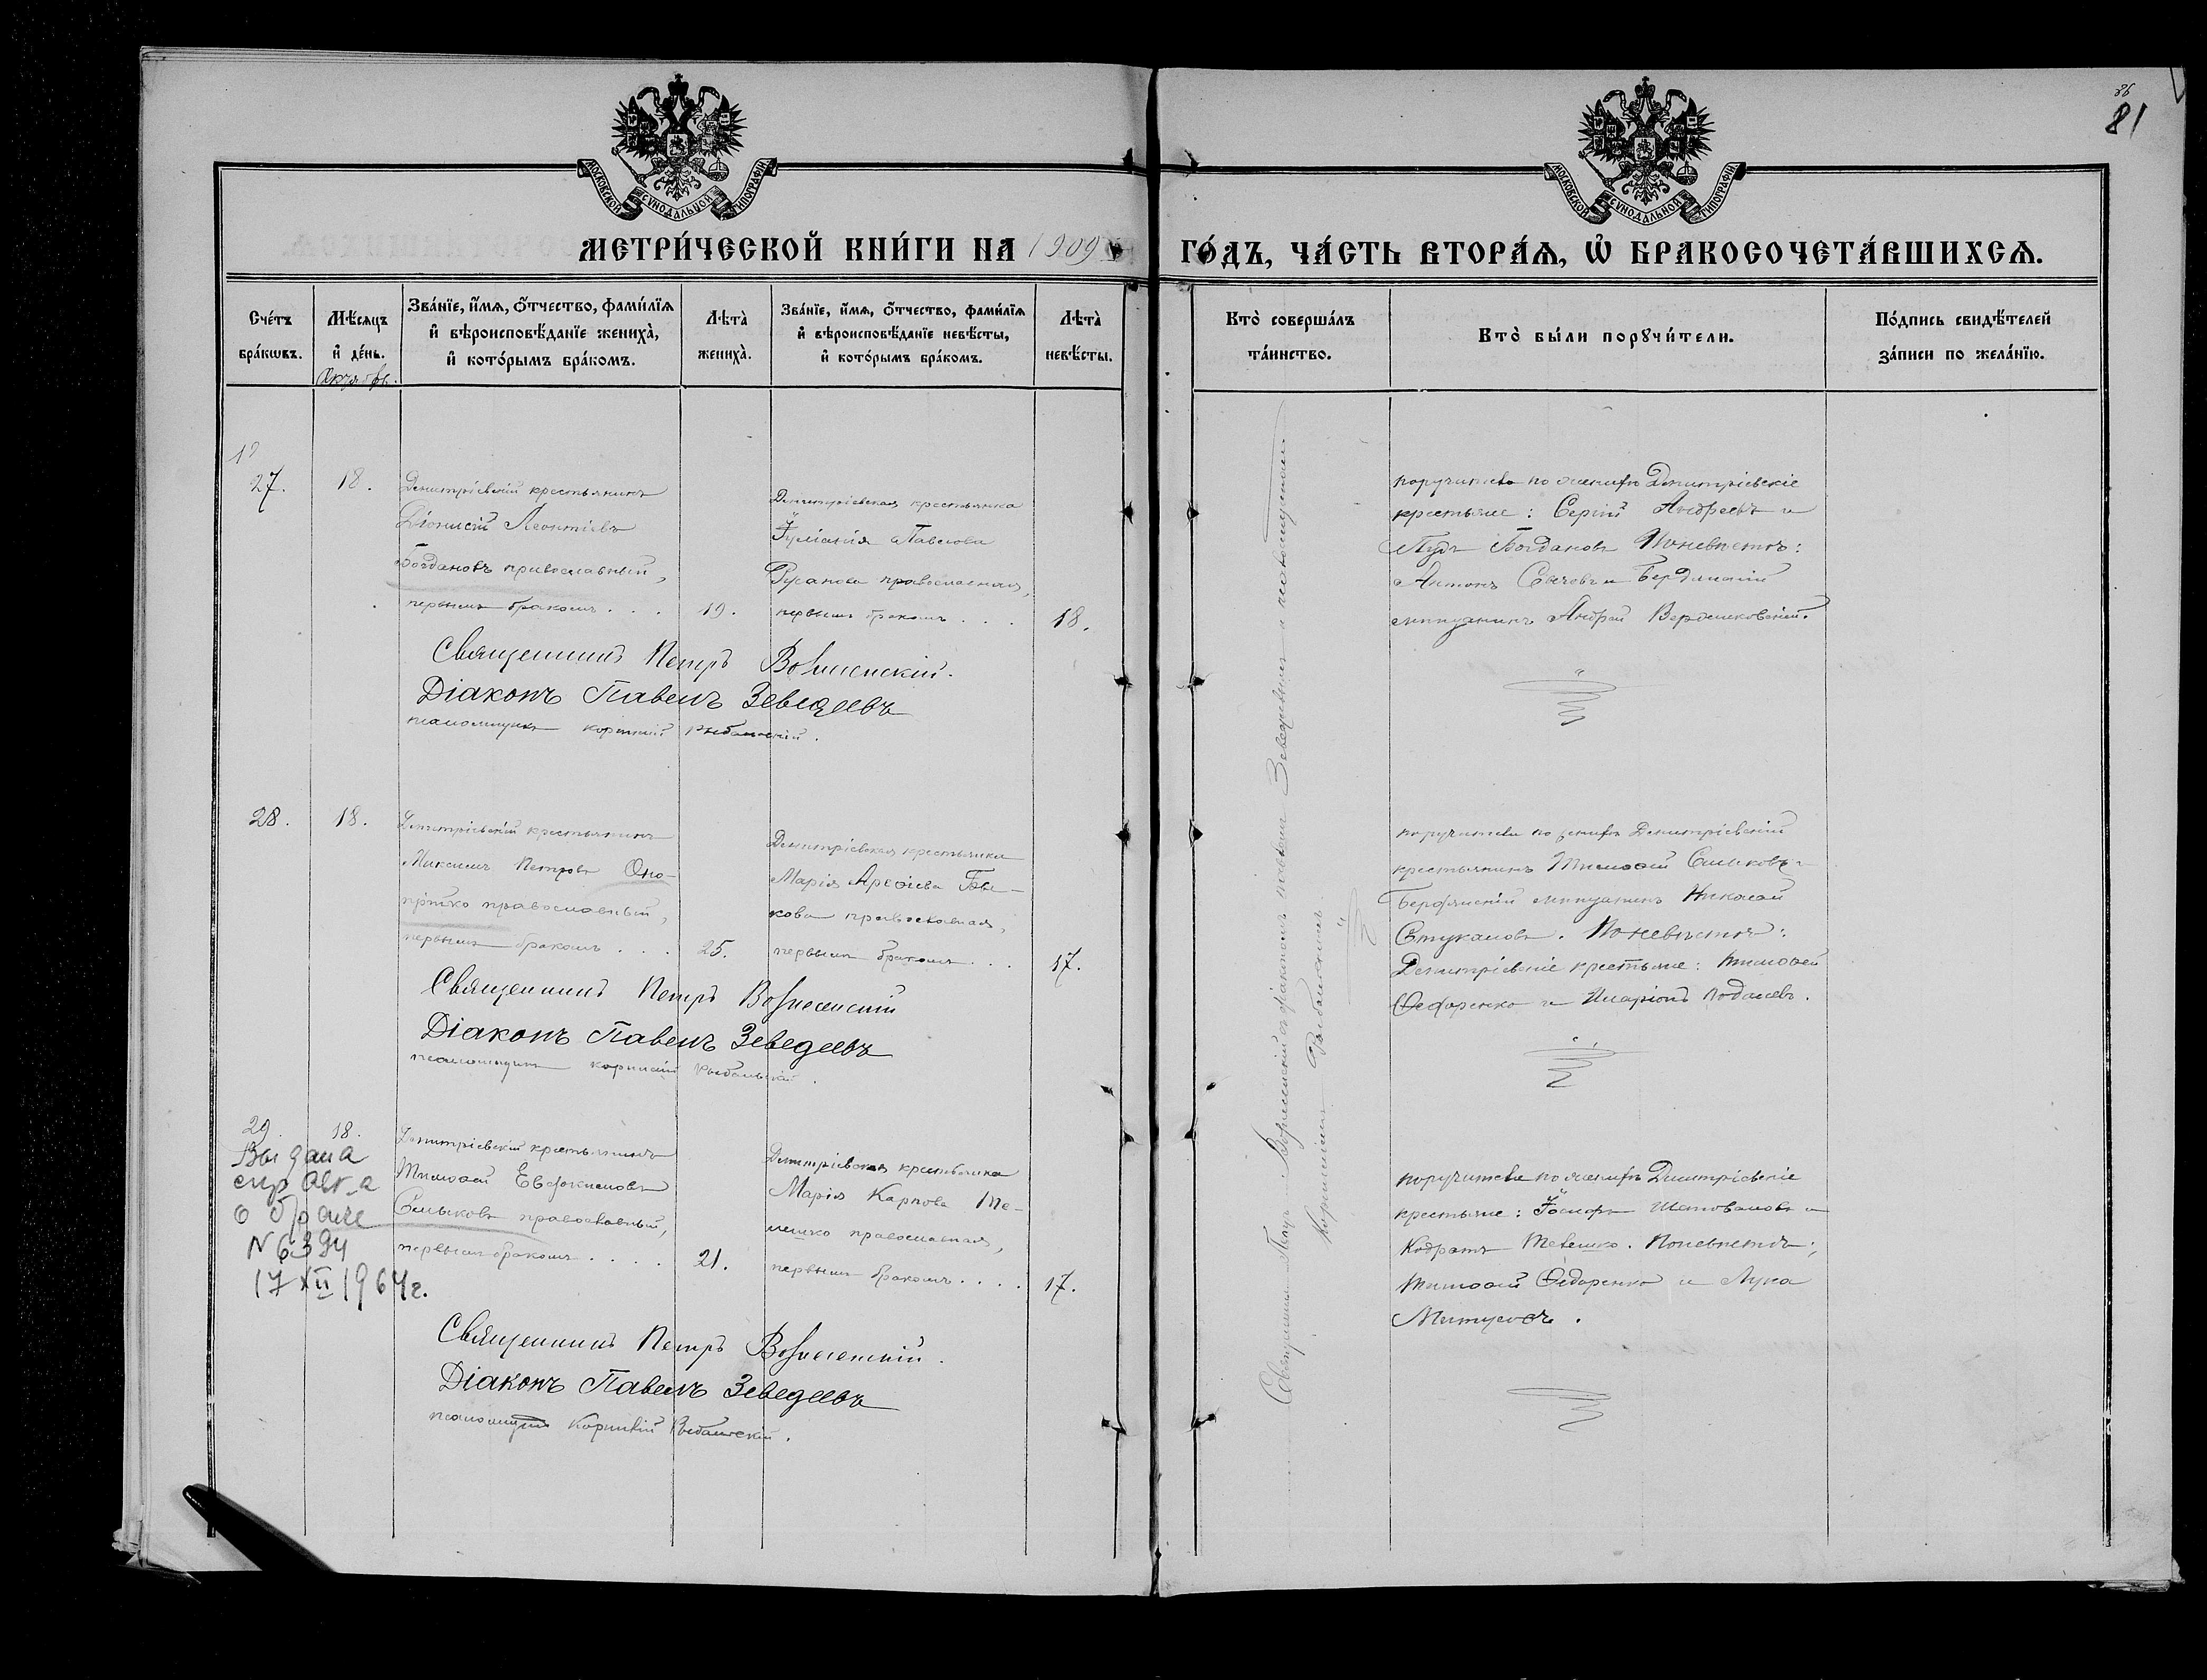 81
МОСКОВСКОЙ СѴНОДАЛЬНОЙ ТИПОГРАФІИ
МОСКОВСКОЙ СѴНОДАЛЬНОЙ ТИПОГРАФІИ
МЕТРИ́ЧЕСКОЙ КНИ́ГИ НА 1909 ГО́ДЪ, ЧА́СТЬ ВТОРА́Ѧ, Ѡ҆ БРАКОСОЧЕТА́ВШИХСѦ.
Сче́тъ бра́кѡвъ.
Мѣ́сяцъ и҆ де́нь.
Октябрь.
Зва́нїе, и҆́мѧ, ѻ҆́тчество, фами́лїѧ
и҆ вѣроисповѣ́данїе жениха̀,
и҆ кото́рымъ бра́комъ.
Лѣта̀ жениха̀.
Зва́нїе, и҆́мѧ, ѻ҆́тчество, фами́лїѧ
и҆ вѣроисповѣ́данїе невѣ́сты,
и҆ кото́рымъ бра́комъ.
Лѣта̀ невѣ́сты.
Кто̀ соверша́лъ та́инство.
Кто̀ бы́ли порꙋчи́тели.
По́дпись свидѣ́телей за́писи по жела́нїю.
27. 18.
Димитріевскій крестьянинъ
Діонисій Леонтіевъ
Богдановъ православный,
первымъ бракомъ . . . 19.
Димитріевская крестьянка
Іуліанія Павлова
Русанова православная,
первымъ бракомъ . . . 18.
поручители по женихѣ Димитріевскіе
крестьяне: Сергій Андреевъ и
Богдановъ По невѣстѣ:
Антонъ Сычевъ и Бердянскій
мѣщанинъ Андрей
Священникъ Петръ Вознесенскій.
Діаконъ Павелъ Зеведеевъ
псаломщикъ Корнилій Рыбальскій.
28. 18.
Димитріевскій крестьянинъ
Максимъ Петровъ Оно-
прійко православный,
первымъ бракомъ . . . 25.
Димитріевская крестьянка
Марія
кова православная,
первымъ бракомъ . . . 17.
поручители по женихѣ Димитріевскій
крестьянинъ Тимоѳей Смыковъ и
Бердянскій мѣщанинъ Николай
Стукаловъ. По невѣстѣ:
Димитріевскіе крестьяне: Тимоѳей
Ѳедоренко и Иларіонъ
Священникъ Петръ Вознесенскій
Діаконъ Павелъ Зеведеевъ
псаломщикъ Корнилій Рыбальскій.
29. 18.
Выдана
спр авк-а
о браке
N 6394
17 XII 1964г.
Димитріевскій крестьянинъ
Тимоѳей Евдокимовъ
Смыковъ православный,
первымъ бракомъ . . . . 21.
Димитріевская крестьянка
Марія Карпова Те-
лешко православная,
первымъ бракомъ . . . . 17.
поручители по женихѣ Димитріевскіе
крестьяне: Іосифъ Шаповаловъ и
Кодратъ Телешко. По невѣстѣ:
Тимоѳей Ѳедоренко и Лука
Священникъ Петръ Вознесенскій.
Діаконъ Павелъ Зеведеевъ
псаломщикъ Корнилій Рыбальскій.